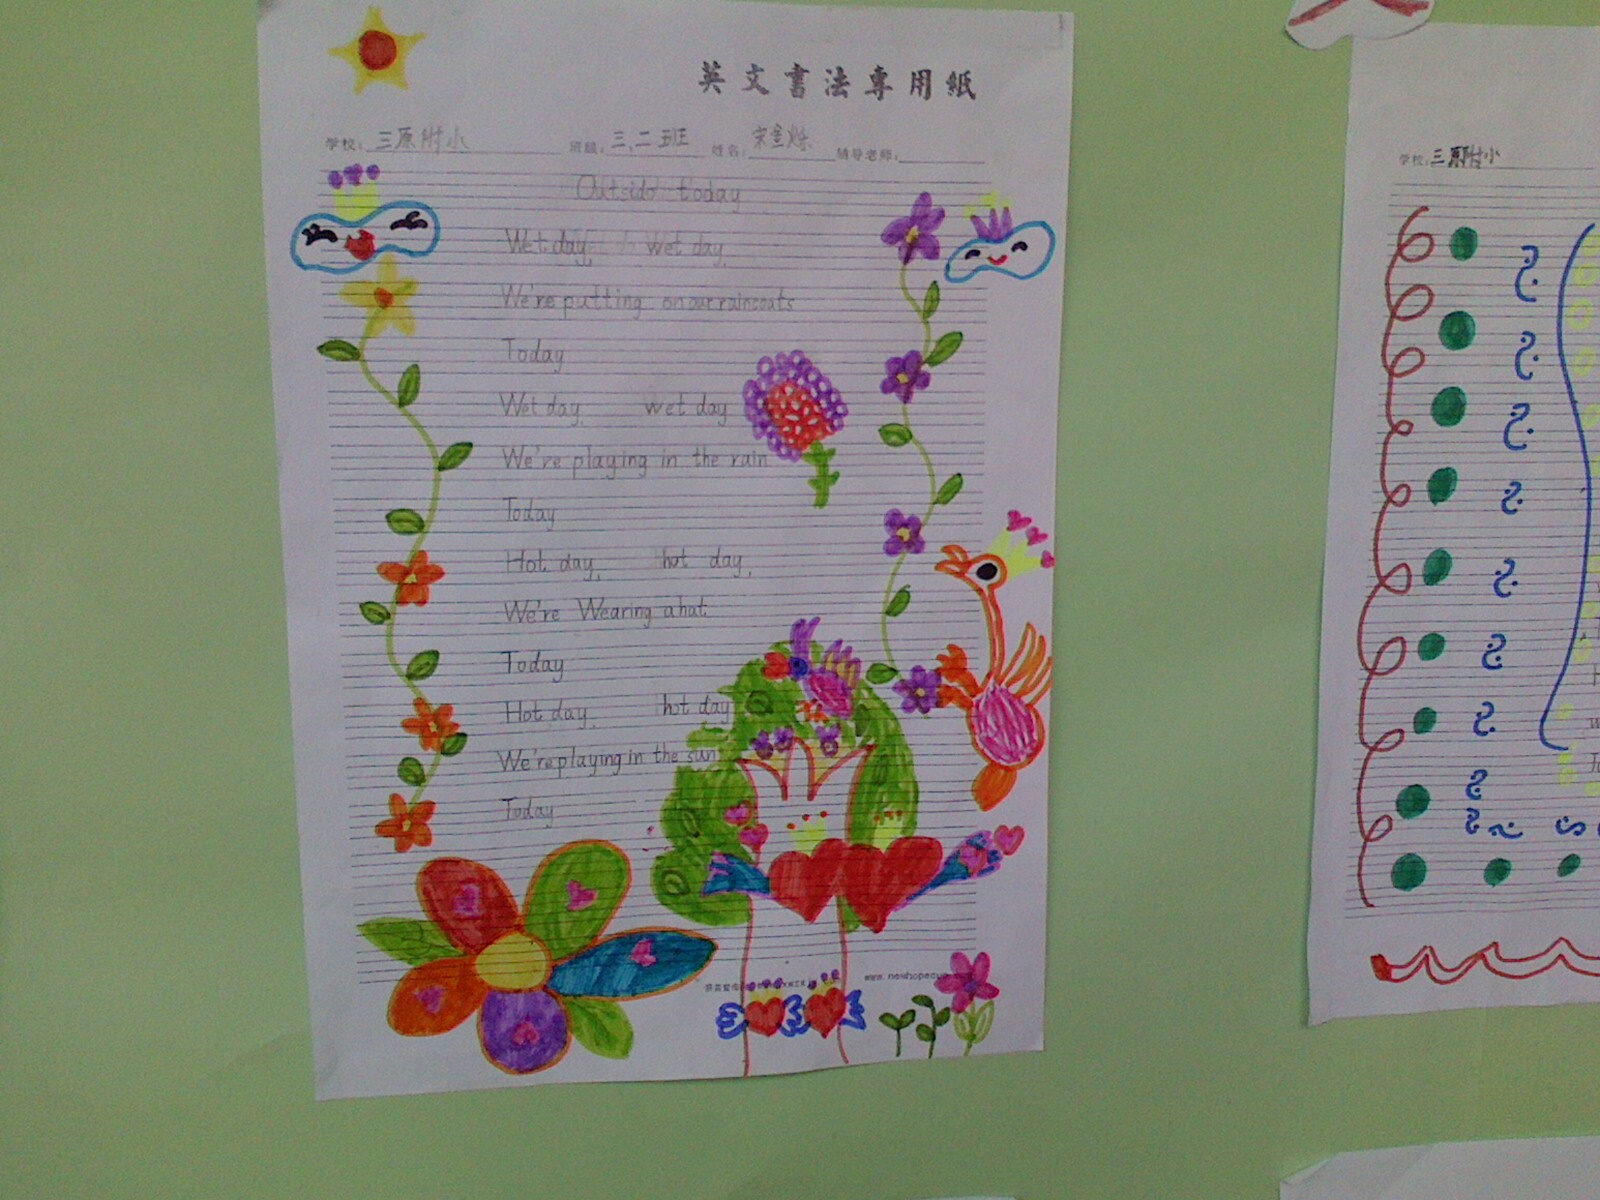 英文書法專用紙
学校: 三原附小 班级: 三、二班 姓名: 宋 辅导老师:
Outside today
Wet day, wet day,
We're putting on our raincoats
Today
Wet day, wet day
We're playing in the rain
Today
Hot day, hot day,
We're Wearing a hat
Today
Hot day, hot day
We're playing in the sun
Today
学校: 三原附小